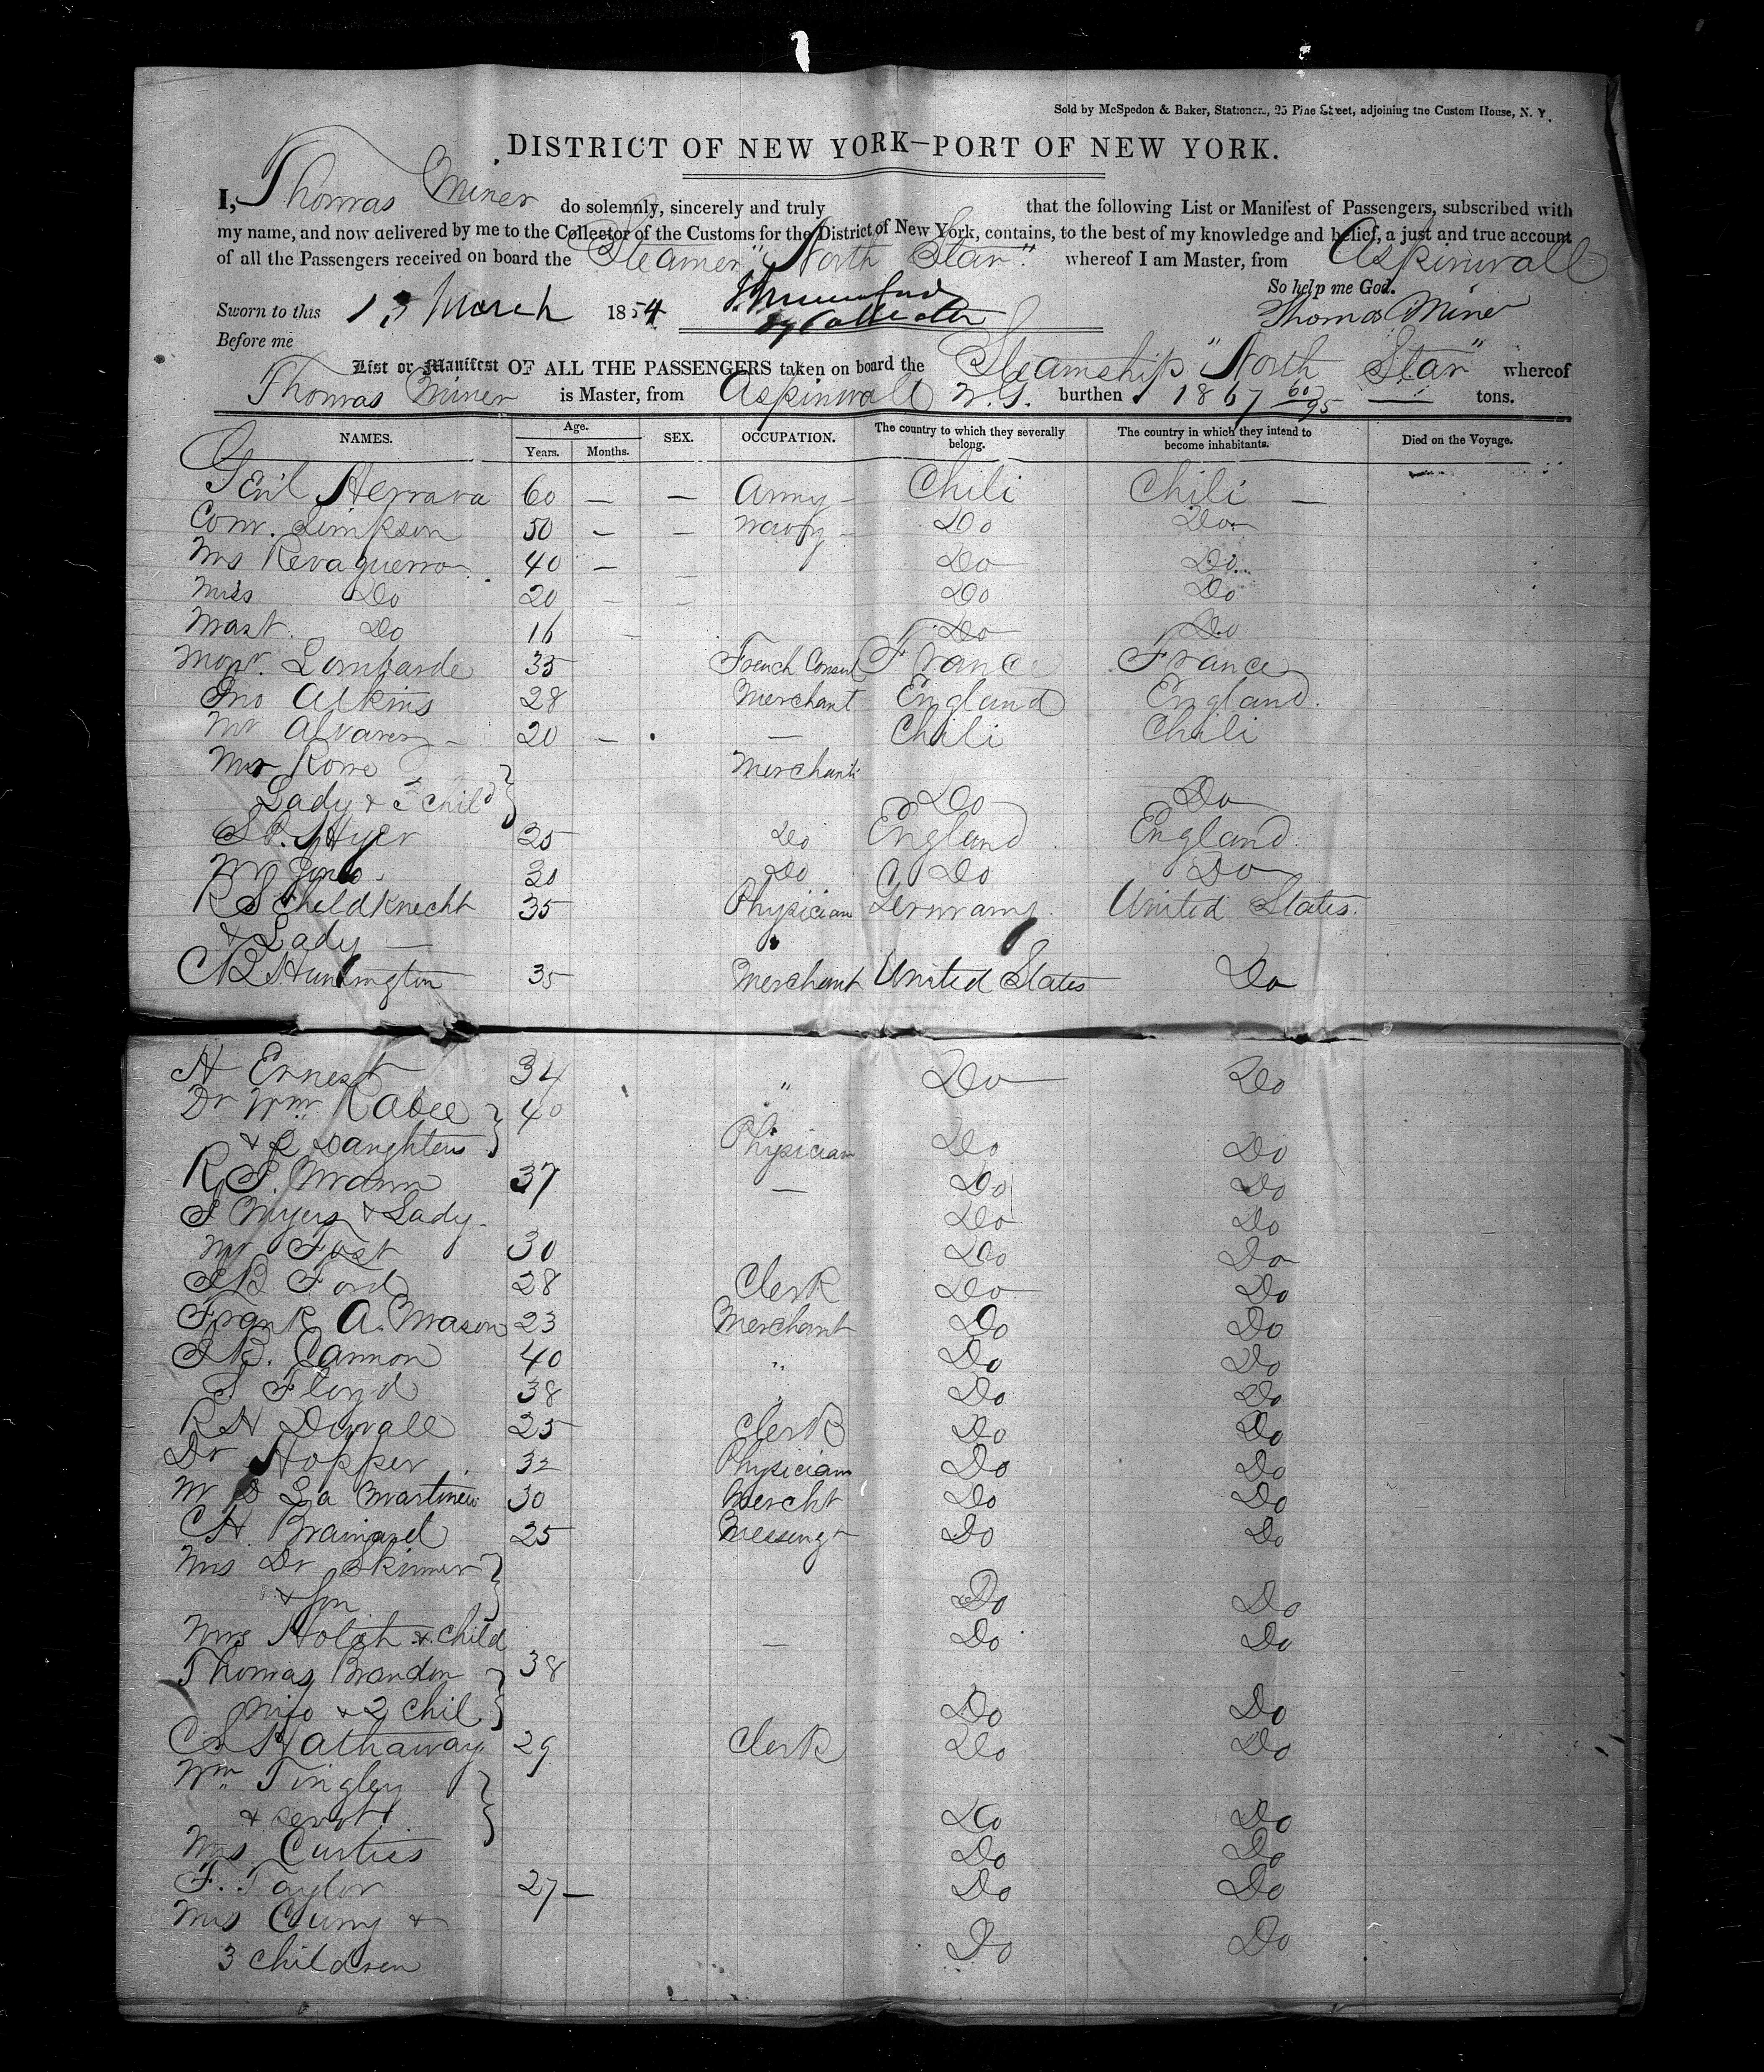 Sold by McSpedon & Baker, Stationers, 25 Pine Street, adjoining the Custom House, N. Y.
DISTRICT OF NEW YORK—PORT OF NEW YORK.
I, Thomas Miner do solemnly, sincerely and truly that the following List or Manifest of Passengers, subscribed with
my name, and now delivered by me to the Collector of the Customs for the District of New York, contains, to the best of my knowledge and belief, a just and true account
of all the Passengers received on board the Steamer "North Star" whereof I am Master, from Aspinwall
So help me God.
Sworn to this 13 March 1854 Thomas Miner
Before me
List or Manifest OF ALL THE PASSENGERS taken on board the Steamship "North Star" whereof
Thomas Miner is Master, from Aspinwall N. G. burthen 1867 60/95 tons.
NAMES. Age. Years. Months. SEX. OCCUPATION. The country to which they severally belong. The country in which they intend to become inhabitants. Died on the Voyage.
Gen'l Herrara 60 — — Army — Chili Chili —
Com. Simpson 50 — — Navy — Do Do
Mrs Revaguerro 40 — — Do Do
Miss Do 20 — — Do Do
Mast. Do 16 — Do Do
Monr. Lombarde 35 French Consul France France
Jno Atkins 28 Merchant England England.
Mr Alvarez — 20 — — Chili Chili
Mr Rowe Merchant
Lady & 3 Child Do Do
S. P. Hyer 25 Do England England.
Mr Jones 30 Do Do Do
R Schildknecht 35 Physician Germany. United States.
& Lady —
C B Huntington 35 Merchant United States Do
H Ernest 34 " Do Do
Dr Wm Rabee 40
& 2 Daughters Physician Do Do
R. S. Mann 37 — Do Do
S Myers & Lady Do Do
Mr Fost 30 Do Do
J B Ford 28 Clerk Do Do
Frank A. Mason 23 Merchant Do Do
J B. Cannon 40 " Do Do
S Floyd 38 " Do Do
R H Duvall 25 Clerk Do Do
Dr Hopper 32 Physician Do Do
Mr D La Martinew 30 Mercht Do Do
C H. Brainard 25 Messengr Do Do
Mrs Dr Skinner
& Son Do Do
Mrs Holch & Child — Do Do
Thomas Brandon 38
Mrs & 2 Chil Do Do
C S Hathaway 29 Clerk Do Do
Wm Tingley
& servt. Do Do
Mrs Curtiss Do Do
F. Taylor 27 — Do Do
Mrs Curry &
3 children Do Do